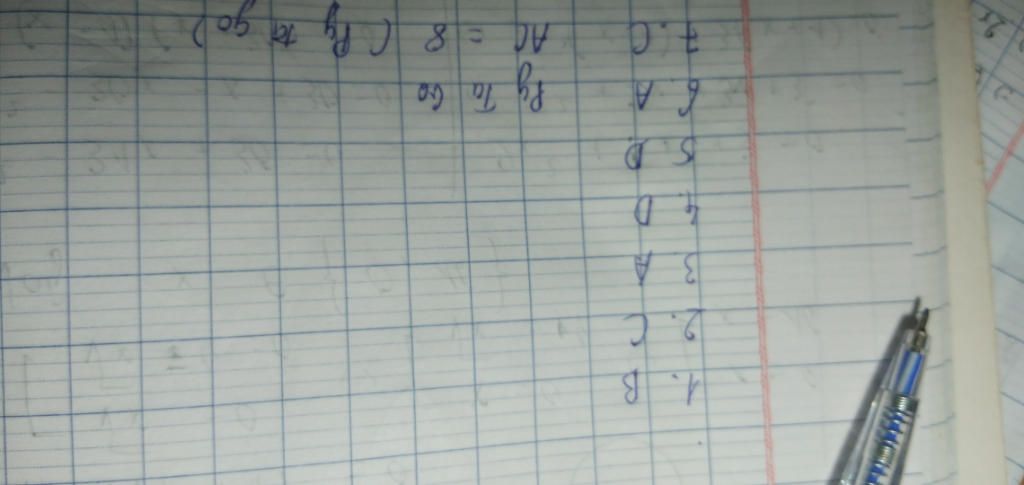 1. B
2. C
3. A
4. D
5. D
6. A Py Ta Go
7. C AC = 8 (Py ta go)